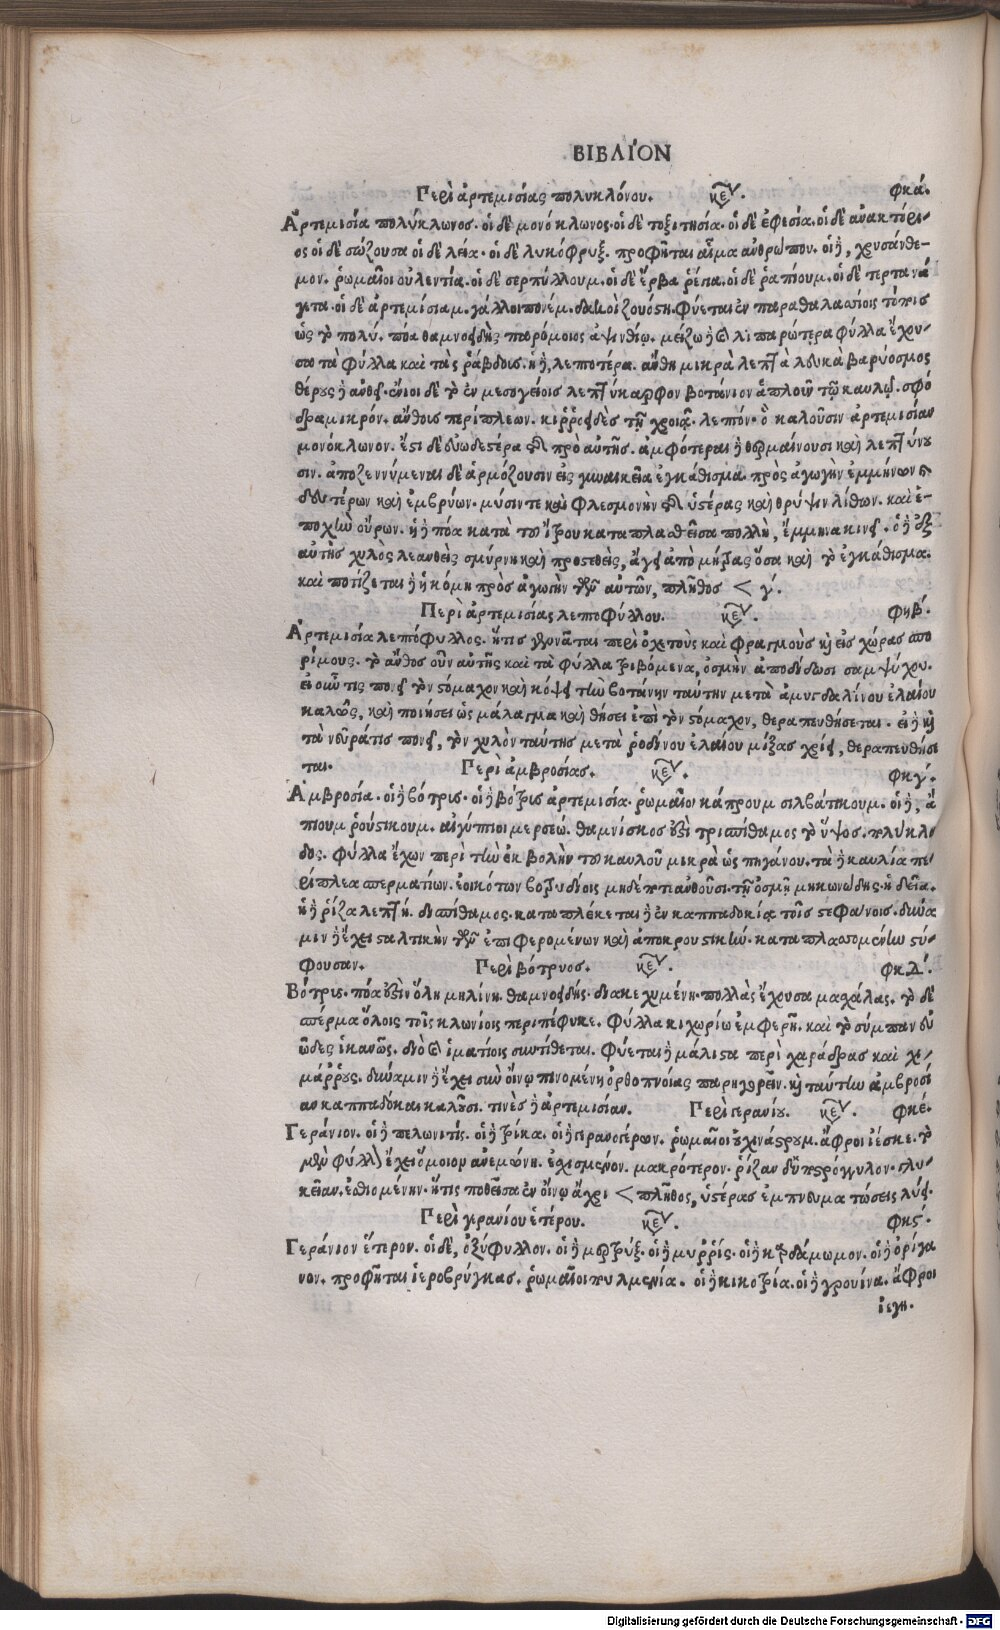 ΒΙΒΛΙΌΝ
Περὶ ἀρτεμισίας πολυκλόνου. κεφ. φκά.
Ἀρτεμισία πολύκλωνος. οἱ δὲ μονόκλωνος. οἱ δὲ τοξιτησία. οἱ δὲ ἐφεσία. οἱ δὲ ἀνακτόρι-
ος οἱ δὲ σώζουσα οἱ δὲ λεία. οἱ δὲ λυκόφρυξ. προφῆται αἷμα ἀνθρώπου. οἱ ἢ, χρυσάνθε-
μον. ῥωμαῖοι οὐλεντία. οἱ δὲ σερπύλλουμ. οἱ δὲ ἕρβα ῥέγια. οἱ δὲ ῥαπίουμ. οἱ δὲ τερτανά
γετα. οἱ δὲ ἀρτεμίσιαμ. γάλλοι πονέμ. δακοὶ ζουόστη. φύεται ἐν παραθαλασσίοις τόποις
ὡς τὸ πολύ. πόα θαμνοειδὴς παρόμοιος ἀψινθίῳ. μείζω δὲ καὶ λιπαρώτερα φύλλα ἔχου-
σα τὰ φύλλα καὶ τὰς ῥάβδους. ἡ δὲ, λεπτοτέρα. ἄνθη μικρὰ λεπτὰ λευκὰ βαρύοσμος
θέρους δὲ ἀνθεῖ. ἔνιοι δὲ τὸ ἐν μεσογείοις λεπτόκαρφον βοτάνιον ἁπλοῦν τῷ καυλῷ. σφό
δρα μικρόν. ἄνθους περίπλεων. κιρροειδὲς τῇ χροιᾷ. λεπτόν. ὃ καλοῦσιν ἀρτεμισίαν
μονόκλωνον. ἔστι δὲ εὐωδεστέρα τῆς πρὸ αὐτῆς. ἀμφότεραι δὲ θερμαίνουσι καὶ λεπτύνου
σιν. ἀποζεννύμεναι δὲ ἁρμόζουσιν εἰς γυναικεῖα ἐγκάθισμα. πρὸς ἀγωγὴν ἐμμήνων καὶ
δευτέρων καὶ ἐμβρύων. μύσιν τε καὶ φλεγμονὴν τῆς ὑστέρας καὶ θρύψιν λίθων. καὶ ἐ-
ποχὴν οὔρων. ἡ δὲ πόα κατὰ τοῦ ἤτρου καταπλασθεῖσα πολλὴ, ἔμμηνα κινεῖ. ὁ δὲ ἐξ
αὐτῆς χυλὸς λεανθεὶς σμύρνῃ καὶ προστεθεὶς, ἄγει ἀπὸ μήτρας ὅσα καὶ τὸ ἐγκάθισμα.
καὶ ποτίζεται δὲ ἡ κόμη πρὸς ἀγωγὴν τῶν αὐτῶν, πλῆθος < γ́.
Περὶ ἀρτεμισίας λεπτοφύλλου. κεφ. φκβ́.
Ἀρτεμισία λεπτόφυλλος. ἥτις γεννᾶται περὶ ὀχετοὺς καὶ φραγμοὺς καὶ εἰς χώρας σπο
ρίμους. τὸ ἄνθος οὖν αὐτῆς καὶ τὰ φύλλα τριβόμενα, ὀσμὴν ἀποδίδωσι σαμψύχου.
εἰ οὖν τις πονεῖ τὸν στόμαχον καὶ κόψει τὴν βοτάνην ταύτην μετὰ ἀμυγδαλίνου ἐλαίου
καλῶς, καὶ ποιήσει ὡς μάλαγμα καὶ θήσει ἐπὶ τὸν στόμαχον, θεραπευθήσεται. εἰ δὲ καὶ
τὰ νεῦρά τις πονεῖ, τὸν χυλὸν ταύτης μετὰ ῥοδίνου ἐλαίου μίξας χρίει, θεραπευθήσε
ται. Περὶ ἀμβροσίας. κεφ. φκγ́.
Ἀμβροσία. οἱ δὲ βότρις. οἱ δὲ βότρις ἀρτεμισία. ῥωμαῖοι κάπρουμ σιλβάτικουμ. οἱ δὲ, ἄ
πιουμ ῥούστικουμ. αἰγύπτιοι μερσεώ. θαμνίσκος ἐστὶ τρισπίθαμος τὸ ὕψος. πολύκλα
δος. φύλλα ἔχων περὶ τὴν ἐκβολὴν τοῦ καυλοῦ μικρὰ ὡς πηγάνου. τὰ δὲ καυλία πε-
ρίπλεα σπερματίων. ἐοικότων βοτρυδίοις μηδέποτε ἀνθοῦσι. τῇ ὀσμῇ μηκωνώδης. ἡδεῖα.
ἡ δὲ ῥίζα λεπτή. δισπίθαμος. καταπλέκεται δὲ ἐν καππαδοκίᾳ τοῖς στεφάνοις. δύνα
μιν δὲ ἔχει σταλτικὴν τῶν ἐπιφερομένων καὶ ἀποκρουστικήν. καταπλασσομένην στύ-
φουσαν. Περὶ βότρυος. κεφ. φκδ́.
Βότρις. πόα ἐστὶν ὅλη μηλίνη. θαμνοειδής. διακεχυμένη. πολλὰς ἔχουσα μασχάλας. τὸ δὲ
σπέρμα ὅλοις τοῖς κλωνίοις περιπέφυκε. φύλλα κιχωρίῳ ἐμφερῆ. καὶ τὸ σύμπαν εὐ
ῶδες ἱκανῶς. διὸ καὶ ἱματίοις συντίθεται. φύεται δὲ μάλιστα περὶ χαράδρας καὶ χει-
μάρρους. δύναμιν δὲ ἔχει σὺν οἴνῳ πινομένη ὀρθοπνοίας παρηγορεῖν. καὶ ταύτην ἀμβροσί
αν καππαδόκαι καλοῦσι. τινὲς δὲ ἀρτεμισίαν. Περὶ γερανίου. κεφ. φκέ.
Γεράνιον. οἱ δὲ πελωνιτίς. οἱ δὲ τρίκα. οἱ δὲ γερανογέρων. ῥωμαῖοι ἐχινάστρουμ. ἄφροι ἰέσκε. τὸ
μὲν φύλλον ἔχει ὅμοιον ἀνεμώνῃ. ἐσχισμένον. μακρότερον. ῥίζαν δὲ ὑποστρόγγυλον. γλυ-
κεῖαν. ἐσθιομένην. ἥτις ποθεῖσα ἐν οἴνῳ ἄχρι < πλῆθος, ὑστέρας ἐμπνευματώσεις λύει.
Περὶ γερανίου ἑτέρου. κεφ. φκϛ́.
Γεράνιον ἕτερον. οἱ δὲ, ὀξύφυλλον. οἱ δὲ μερτρύξ. οἱ δὲ μυῤῥίς. οἱ δὲ καρδάμωμον. οἱ δὲ ὀρίγα
νον. προφῆται ἱεροβρύγκας. ῥωμαῖοι πουλμωνία. οἱ δὲ κικοτρία. οἱ δὲ γρουίνα. ἄφροι
ἰεγη.
Digitalisierung gefördert durch die Deutsche Forschungsgemeinschaft - DFG